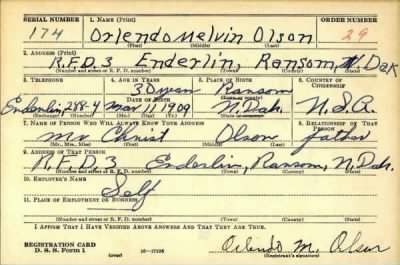 SERIAL NUMBER 1. NAME (Print) ORDER NUMBER
174 Orlendo Melvin Olson 29
(First) (Middle) (Last)
2. ADDRESS (Print)
R.F.D. 3 Enderlin, Ransom, N. Dak
(Number and street or R. F. D. number) (Town) (County) (State)
3. TELEPHONE 4. AGE IN YEARS 5. PLACE OF BIRTH 6. COUNTRY OF CITIZENSHIP
Ransom
DATE OF BIRTH (Town or county)
Enderlin, 288-4 Mar 11 1909 N. Dak.
(Exchange) (Number) (Mo.) (Day) (Yr.) (State or country)
7. NAME OF PERSON WHO WILL ALWAYS KNOW YOUR ADDRESS 8. RELATIONSHIP OF THAT PERSON
Mr Christ Olson father
(Mr., Mrs., Miss) (First) (Middle) (Last)
9. ADDRESS OF THAT PERSON
R.F.D. 3 Enderlin, Ransom, N. Dak.
(Number and street or R. F. D. number) (Town) (County) (State)
10. EMPLOYER'S NAME
Self
11. PLACE OF EMPLOYMENT OR BUSINESS
(Number and street or R. F. D. number) (Town) (County) (State)
I AFFIRM THAT I HAVE VERIFIED ABOVE ANSWERS AND THAT THEY ARE TRUE.
REGISTRATION CARD
D. S. S. Form 1 (over) Orlendo M. Olson
(Registrant's signature)